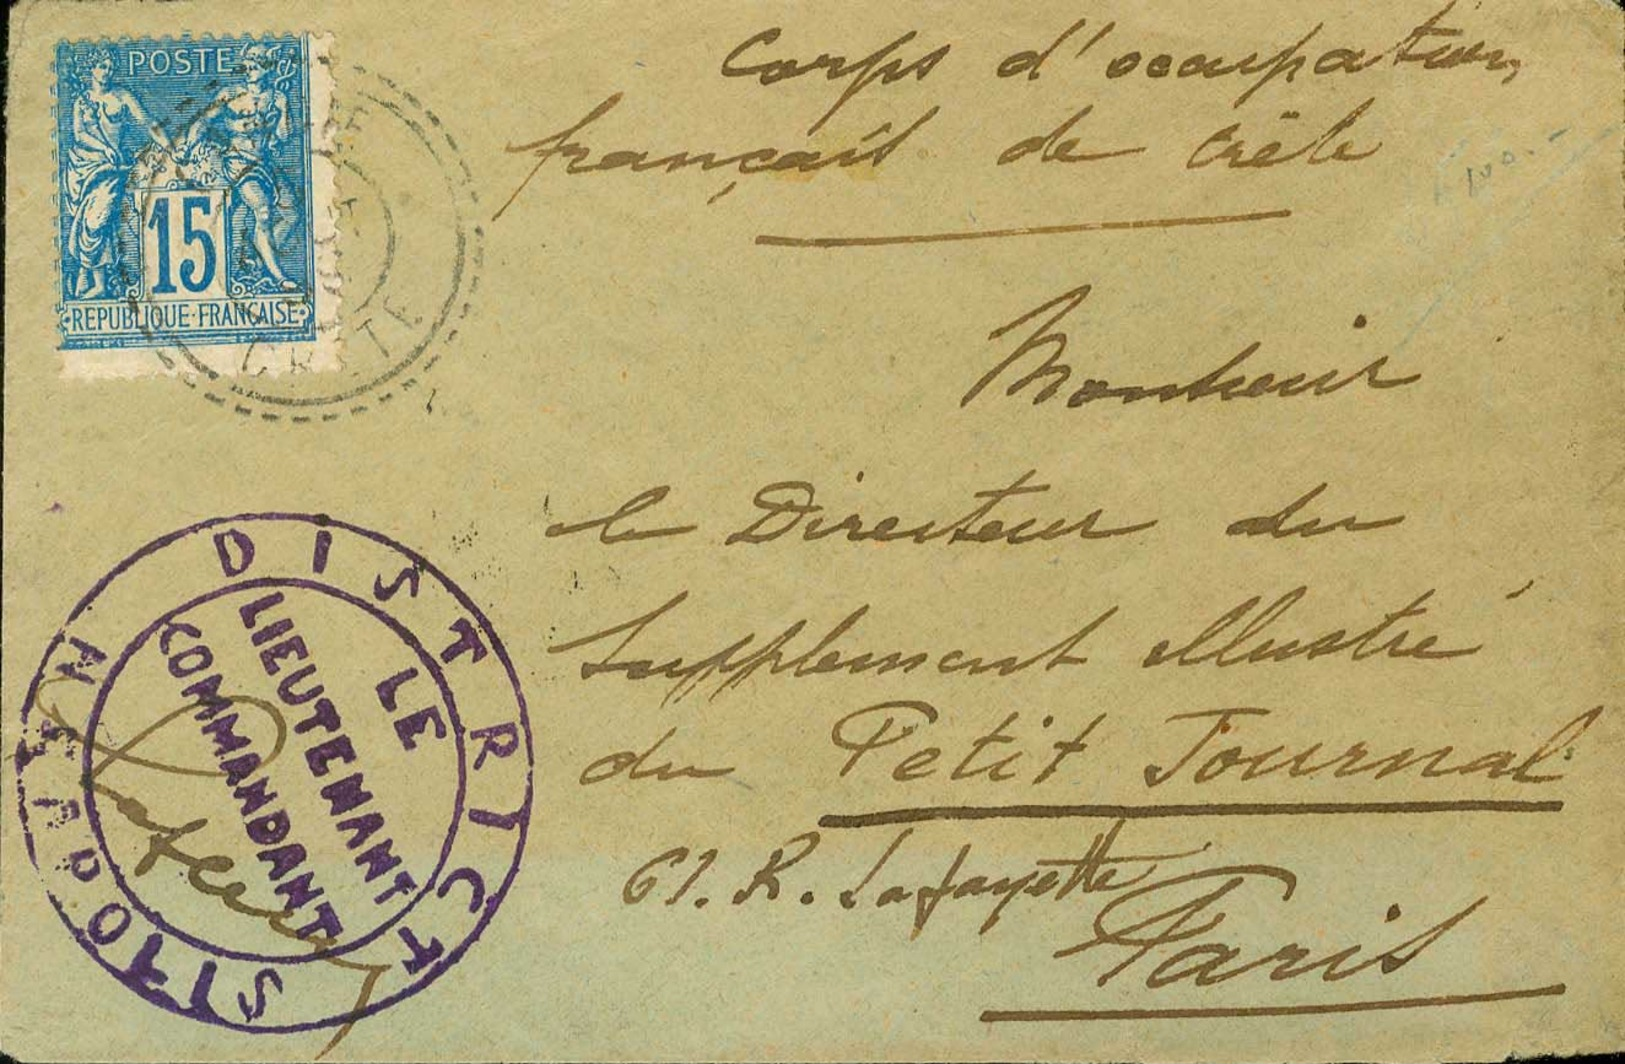 Corps d'occupation
français de Crète
POSTE
15
REPUBLIQUE FRANÇAISE
CRETE
Monsieur
le Directeur du
Supplément illustré
du Petit Journal
61. R. Lafayette
Paris
DISTRICT
LE
LIEUTENANT
COMMANDANT